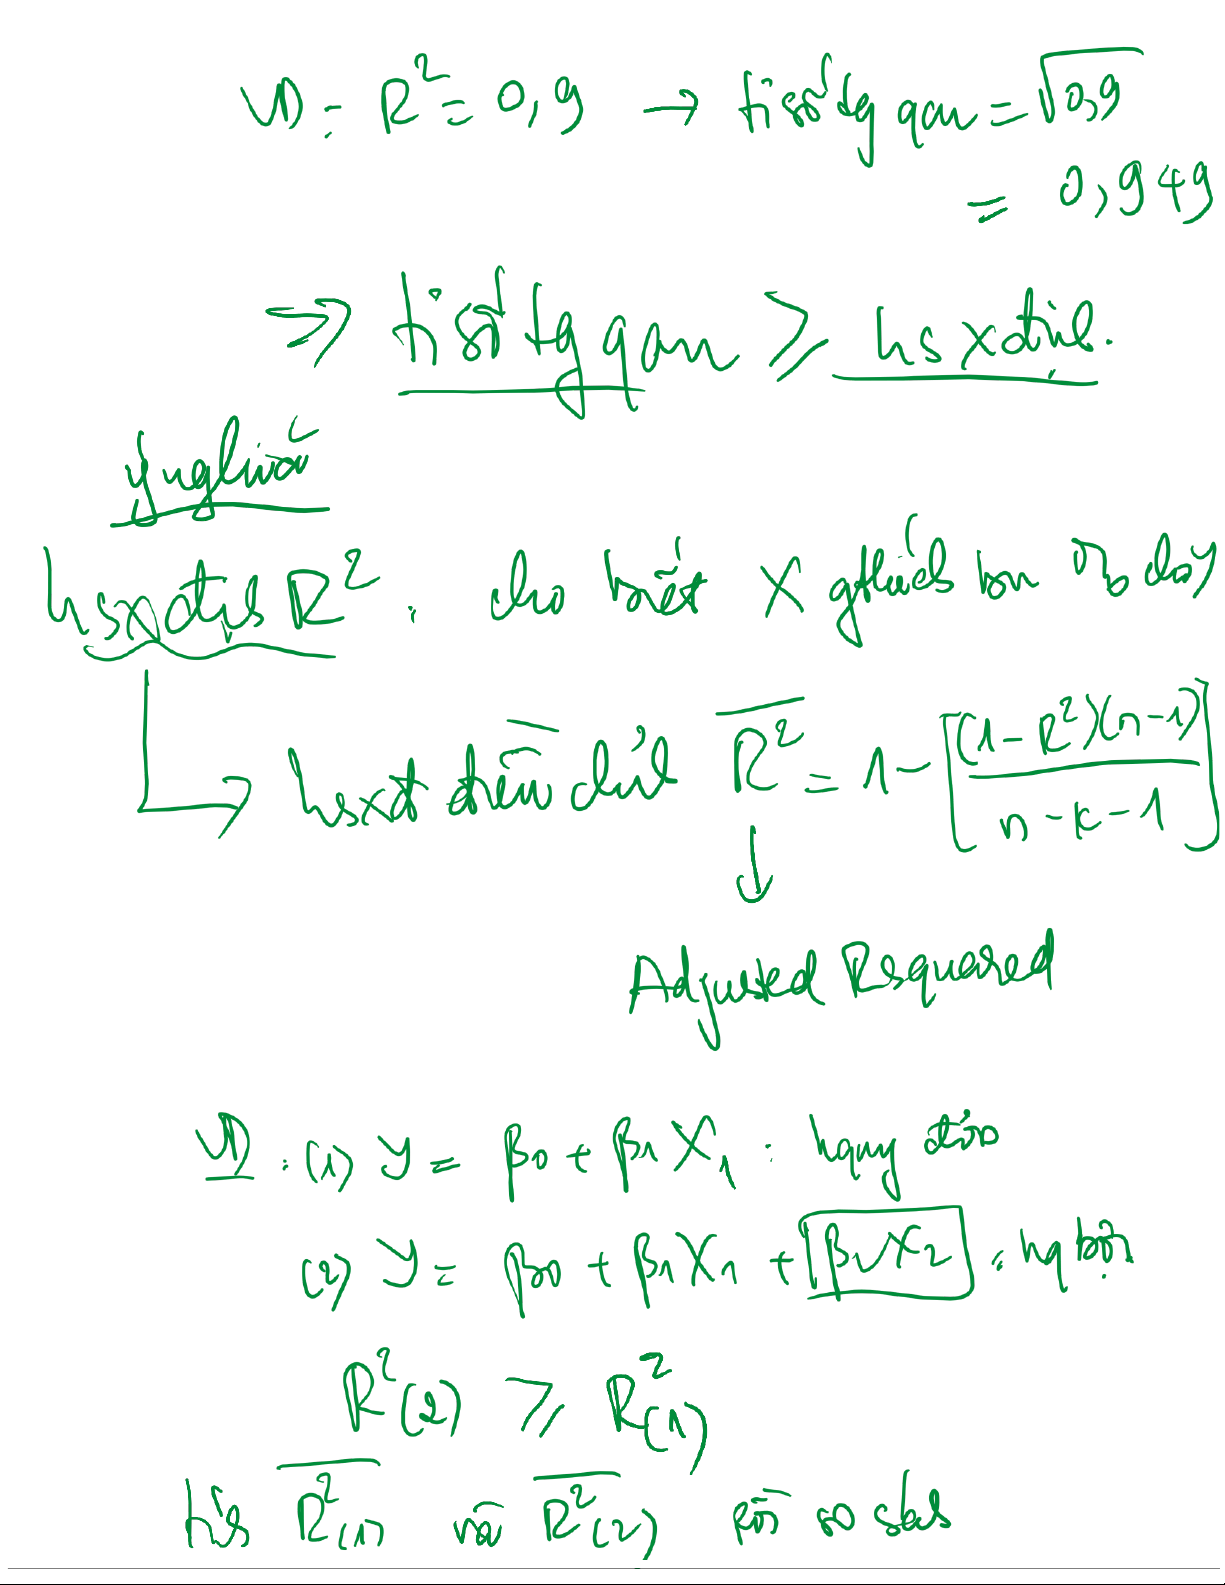 VD: R² = 0,9 → tỉ số tg quan = √0,9
= 0,949
⇒ tỉ số tg quan ≥ hs xđịnh.
ý nghĩa
hs xđịnh R²: cho biết X gthích bn % cho y
hsxđ điều chỉnh R̅² = 1 - [(1-R²)(n-1) / n-k-1]
↓
Adjusted Rsquared
VD: (1) Y = β0 + β1 X1 : hquy đơn
(2) Y = β0 + β1X1 + β2X2 : hq bội
R²(2) ≥ R²(1)
tính R̅²(1) và R̅²(2) rồi so sánh